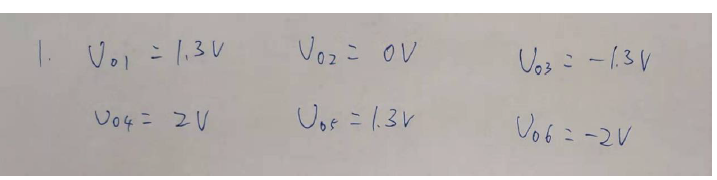 1. U01 = 1.3V U02 = 0V U03 = -1.3V
U04 = 2V U05 = 1.3V U06 = -2V